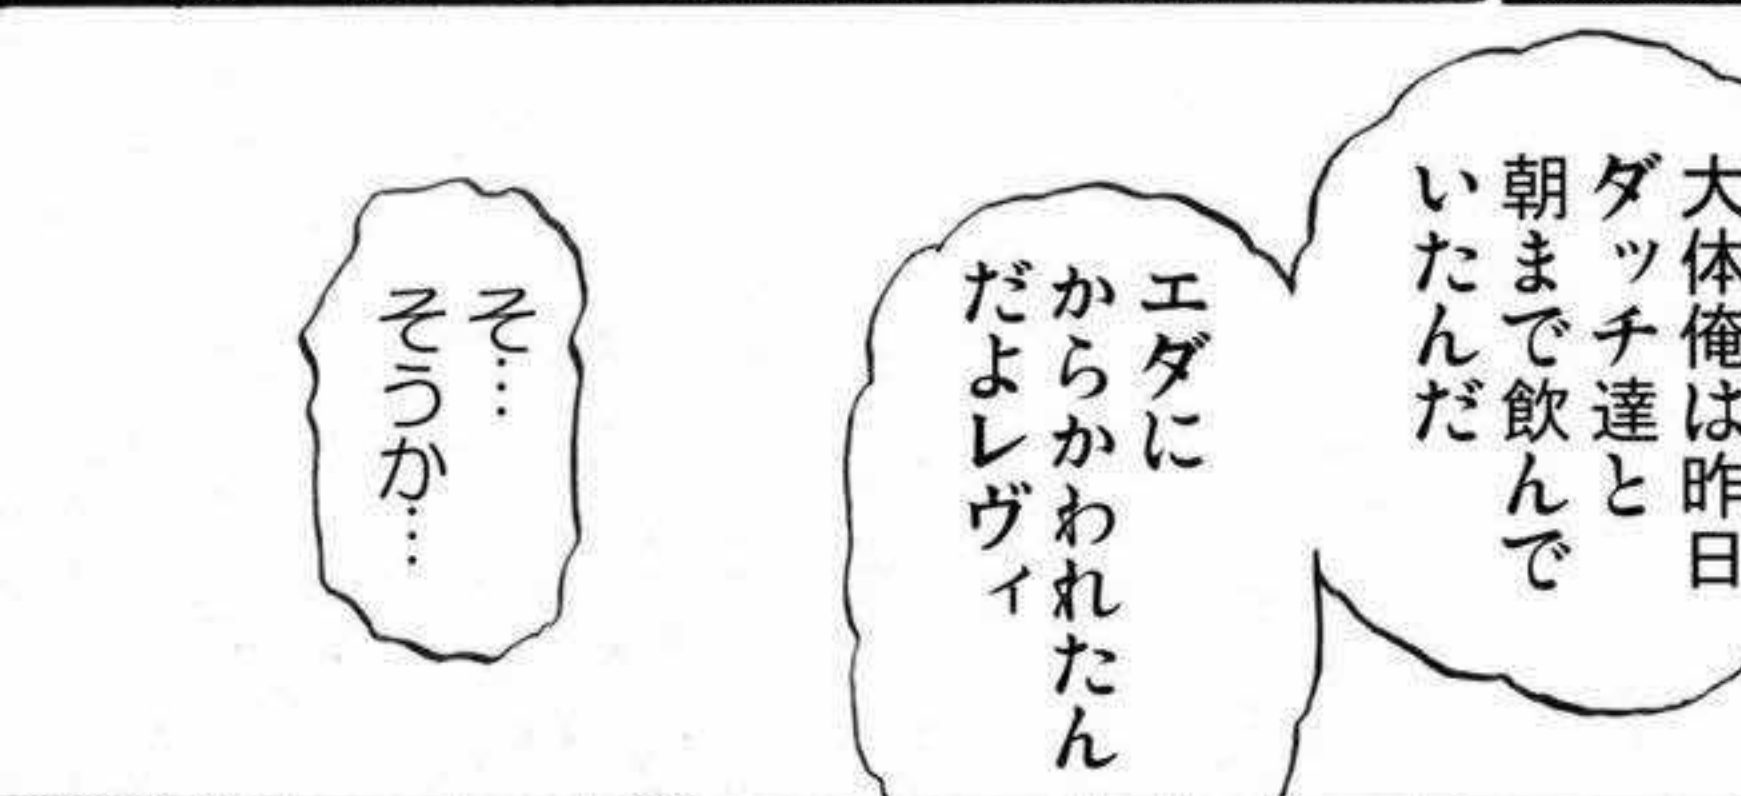 大体俺は昨日
ダッチ達と
朝まで飲んで
いたんだ
エダに
からかわれたん
だよレヴィ
そ…
そうか…